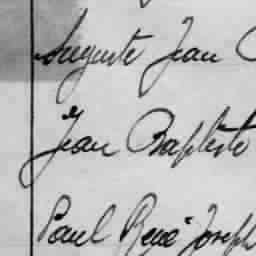 Auguste Jean
Jean Baptiste
Paul René Joseph